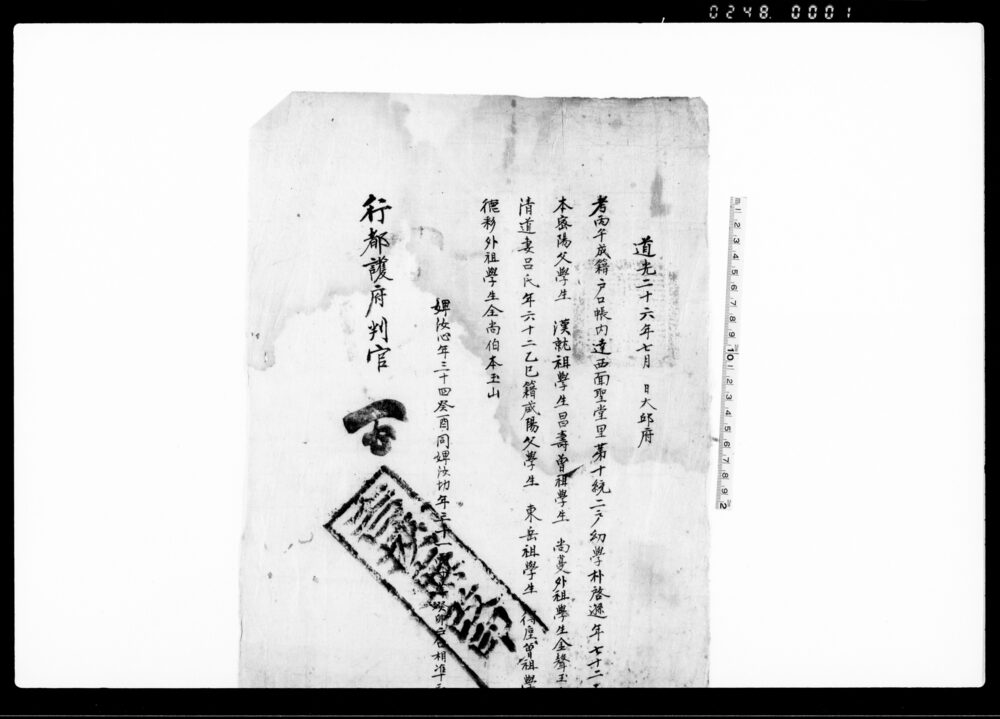 0248. 0001
道光二十六年七月 日大邱府
考丙午成籍戶口帳內達西面聖堂里第十統二戶幼學朴啓遜年七十二
本密陽父學生 漢就祖學生昌壽曾祖學生 尚蔓外祖學生金聲玉
清道妻呂氏年六十二乙巳籍咸陽父學生 東岳祖學生 得垕曾祖學
德彩外祖學生全尚伯本玉山
婢汝心年三十四癸酉同婢汝切年三十一 相準
行都護府判官